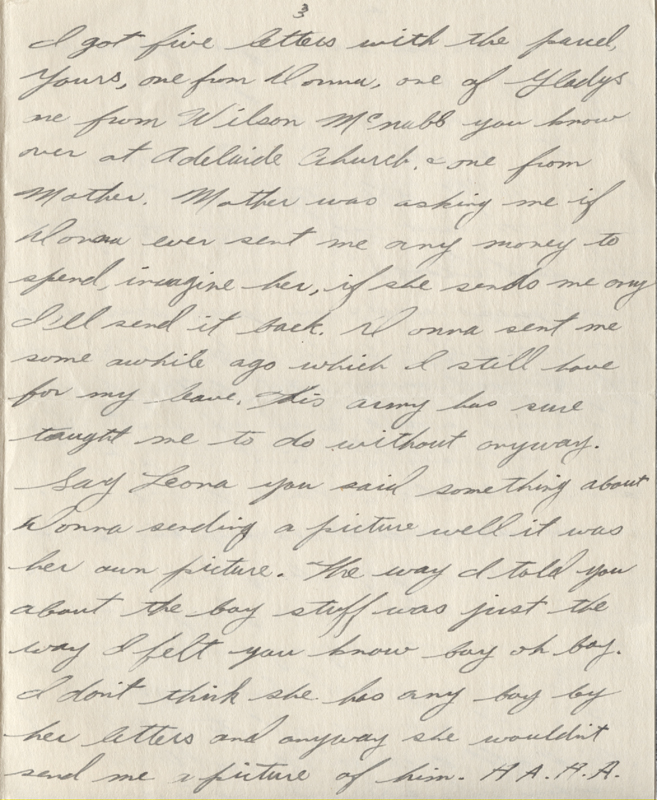 3
I got five letters with the parcel,
Yours, one from Donna, one of Gladys
one from Wilson McNabb you know
over at Adelaide Church, & one from
Mother. Mother was asking me if
Donna ever sent me any money to
spend, imagine her, if she sends me any
I'll send it back. Donna sent me
some awhile ago which I still have
for my leave. This army has sure
taught me to do without anyway.
Say Leona you said something about
Donna sending a picture well it was
her own picture. The way I told you
about the boy stuff was just the
way I felt you know boy oh boy.
I don't think she has any boy by
her letters and anyway she wouldn't
send me a picture of him. H A. H. A.